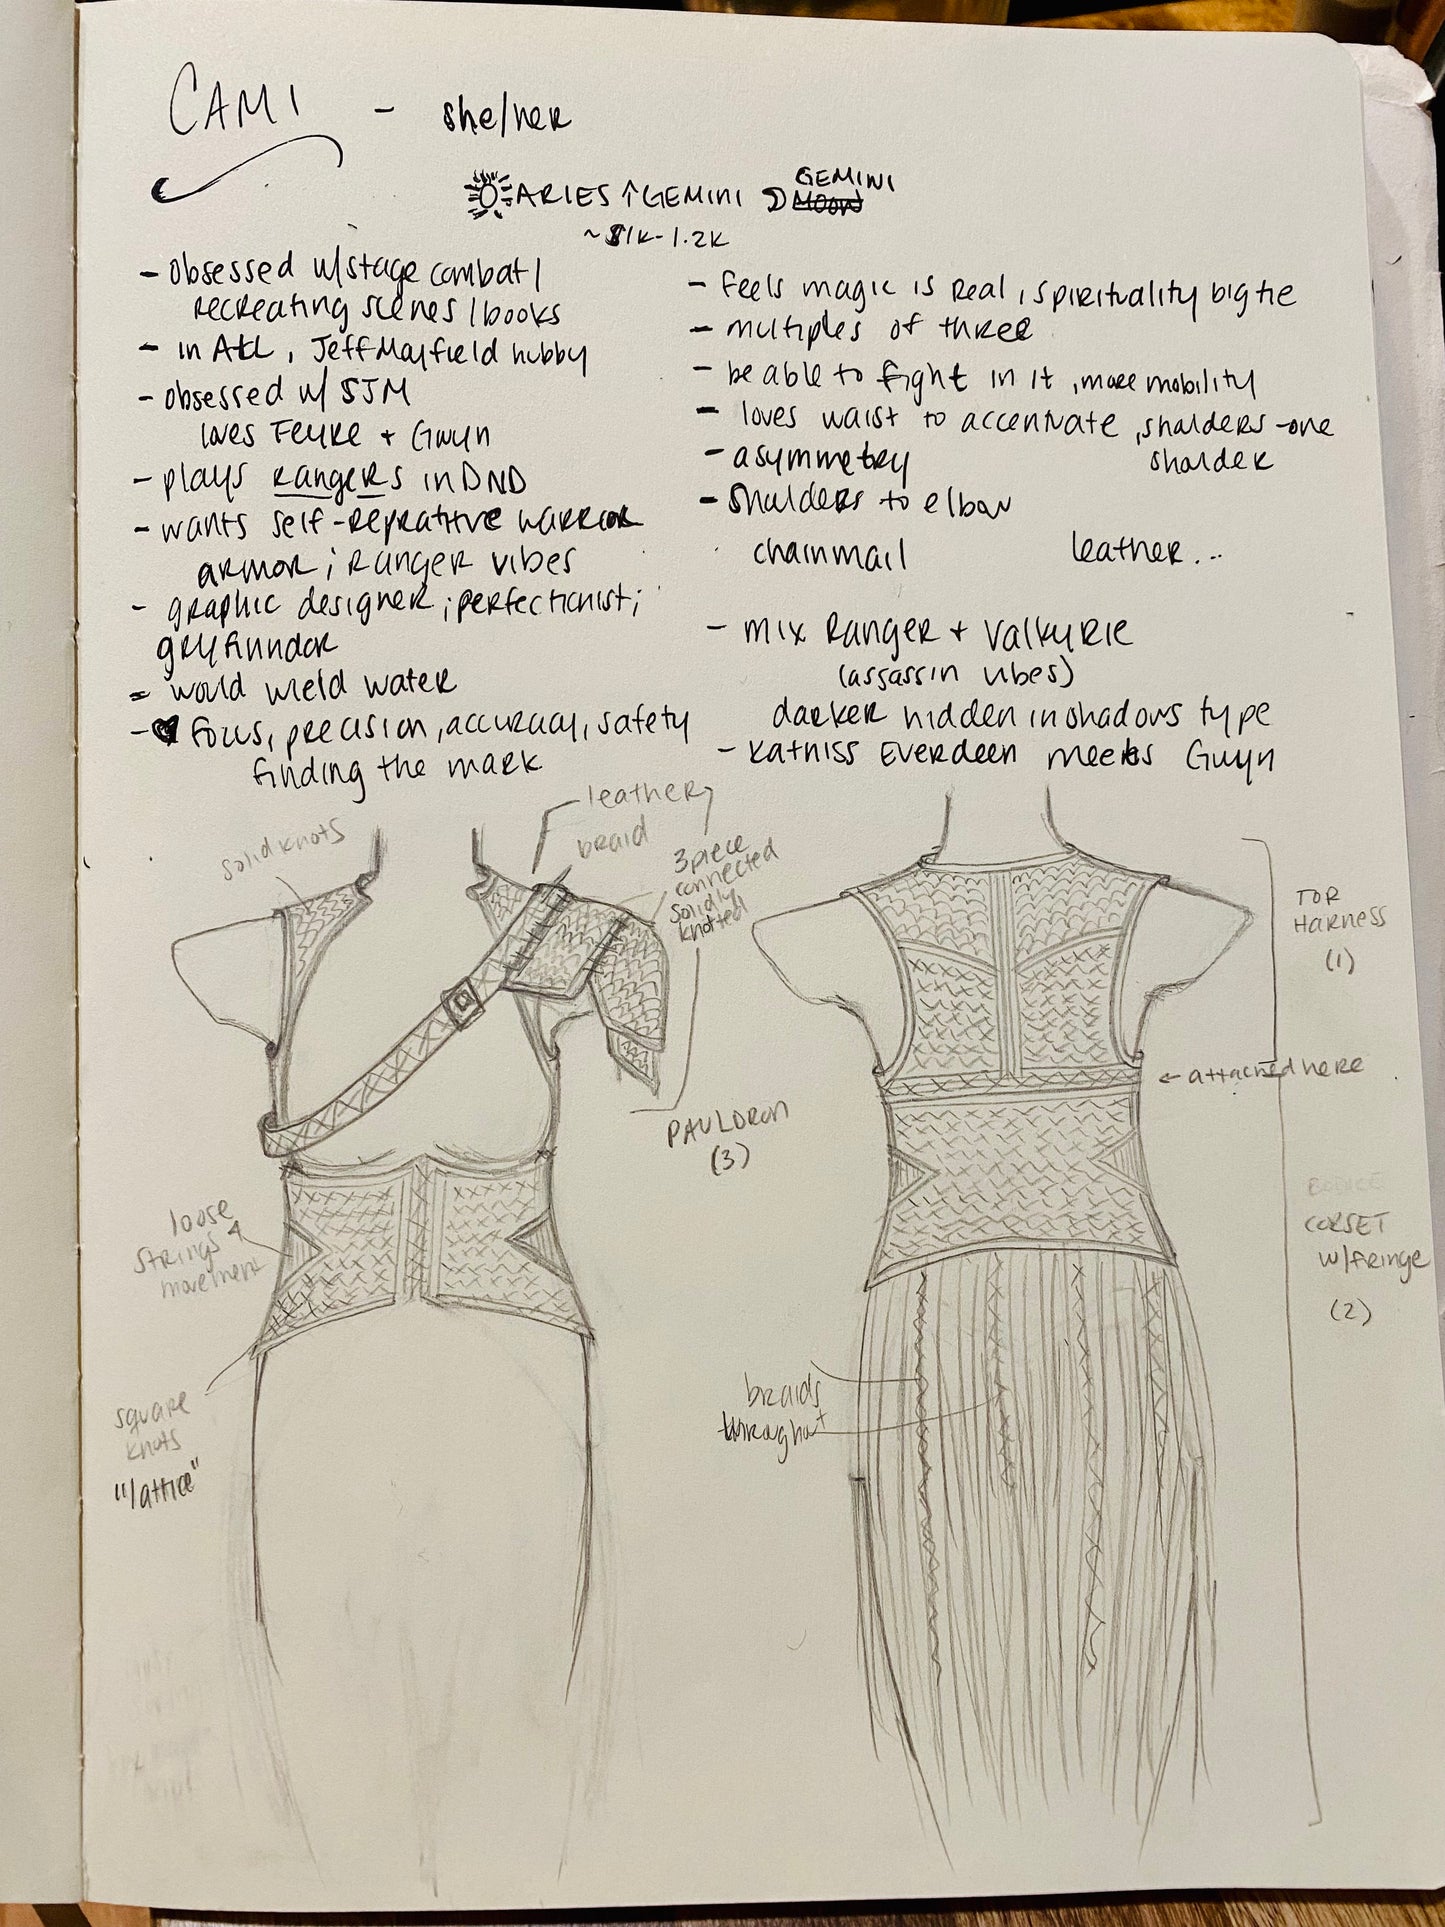 CAMI - she/her
ARIES ↑GEMINI ☽ GEMINI
~$1K-1.2K
- obsessed w/stage combat/
recreating scenes/books
- in Atl, Jeff Mayfield hubby
- obsessed w/ SJM
loves Feyre + Gwyn
- plays rangers in DND
- wants self-repratitive warrior
armor; ranger vibes
- graphic designer; perfectionist;
gryfinndor
- would wield water
- ♥ focus, precision, accuracy, safety
finding the mark
- feels magic is real, spirituality big tie
- multiples of three
- be able to fight in it, more mobility
- loves waist to accentuate, shoulders -one
shoulder
- asymmetry
- shoulders to elbow
chainmail leather...
- mix Ranger + Valkyrie
(assassin vibes)
darker hidden in shadows type
- Katniss Everdeen meets Gwyn
solid knots
leather
braid
3 piece
connected
solidly
knotted
PAULDRON
(3)
loose
strings 4
movement
square
knots
"lattice"
TOP
HARNESS
(1)
← attached here
BODICE
CORSET
w/fringe
(2)
braids
throughout